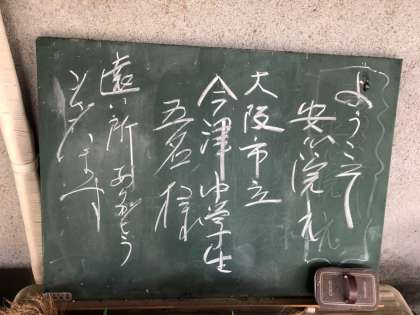 ようこそ
安心院え
大阪市立
今津中学生
五名様
遠い所ありがとう
ございます